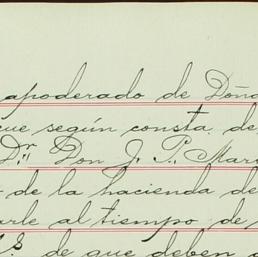 apoderado de Doña
que según consta de
Dr. Don J. P. Mar
de la hacienda de
arle al tiempo de
de que deben